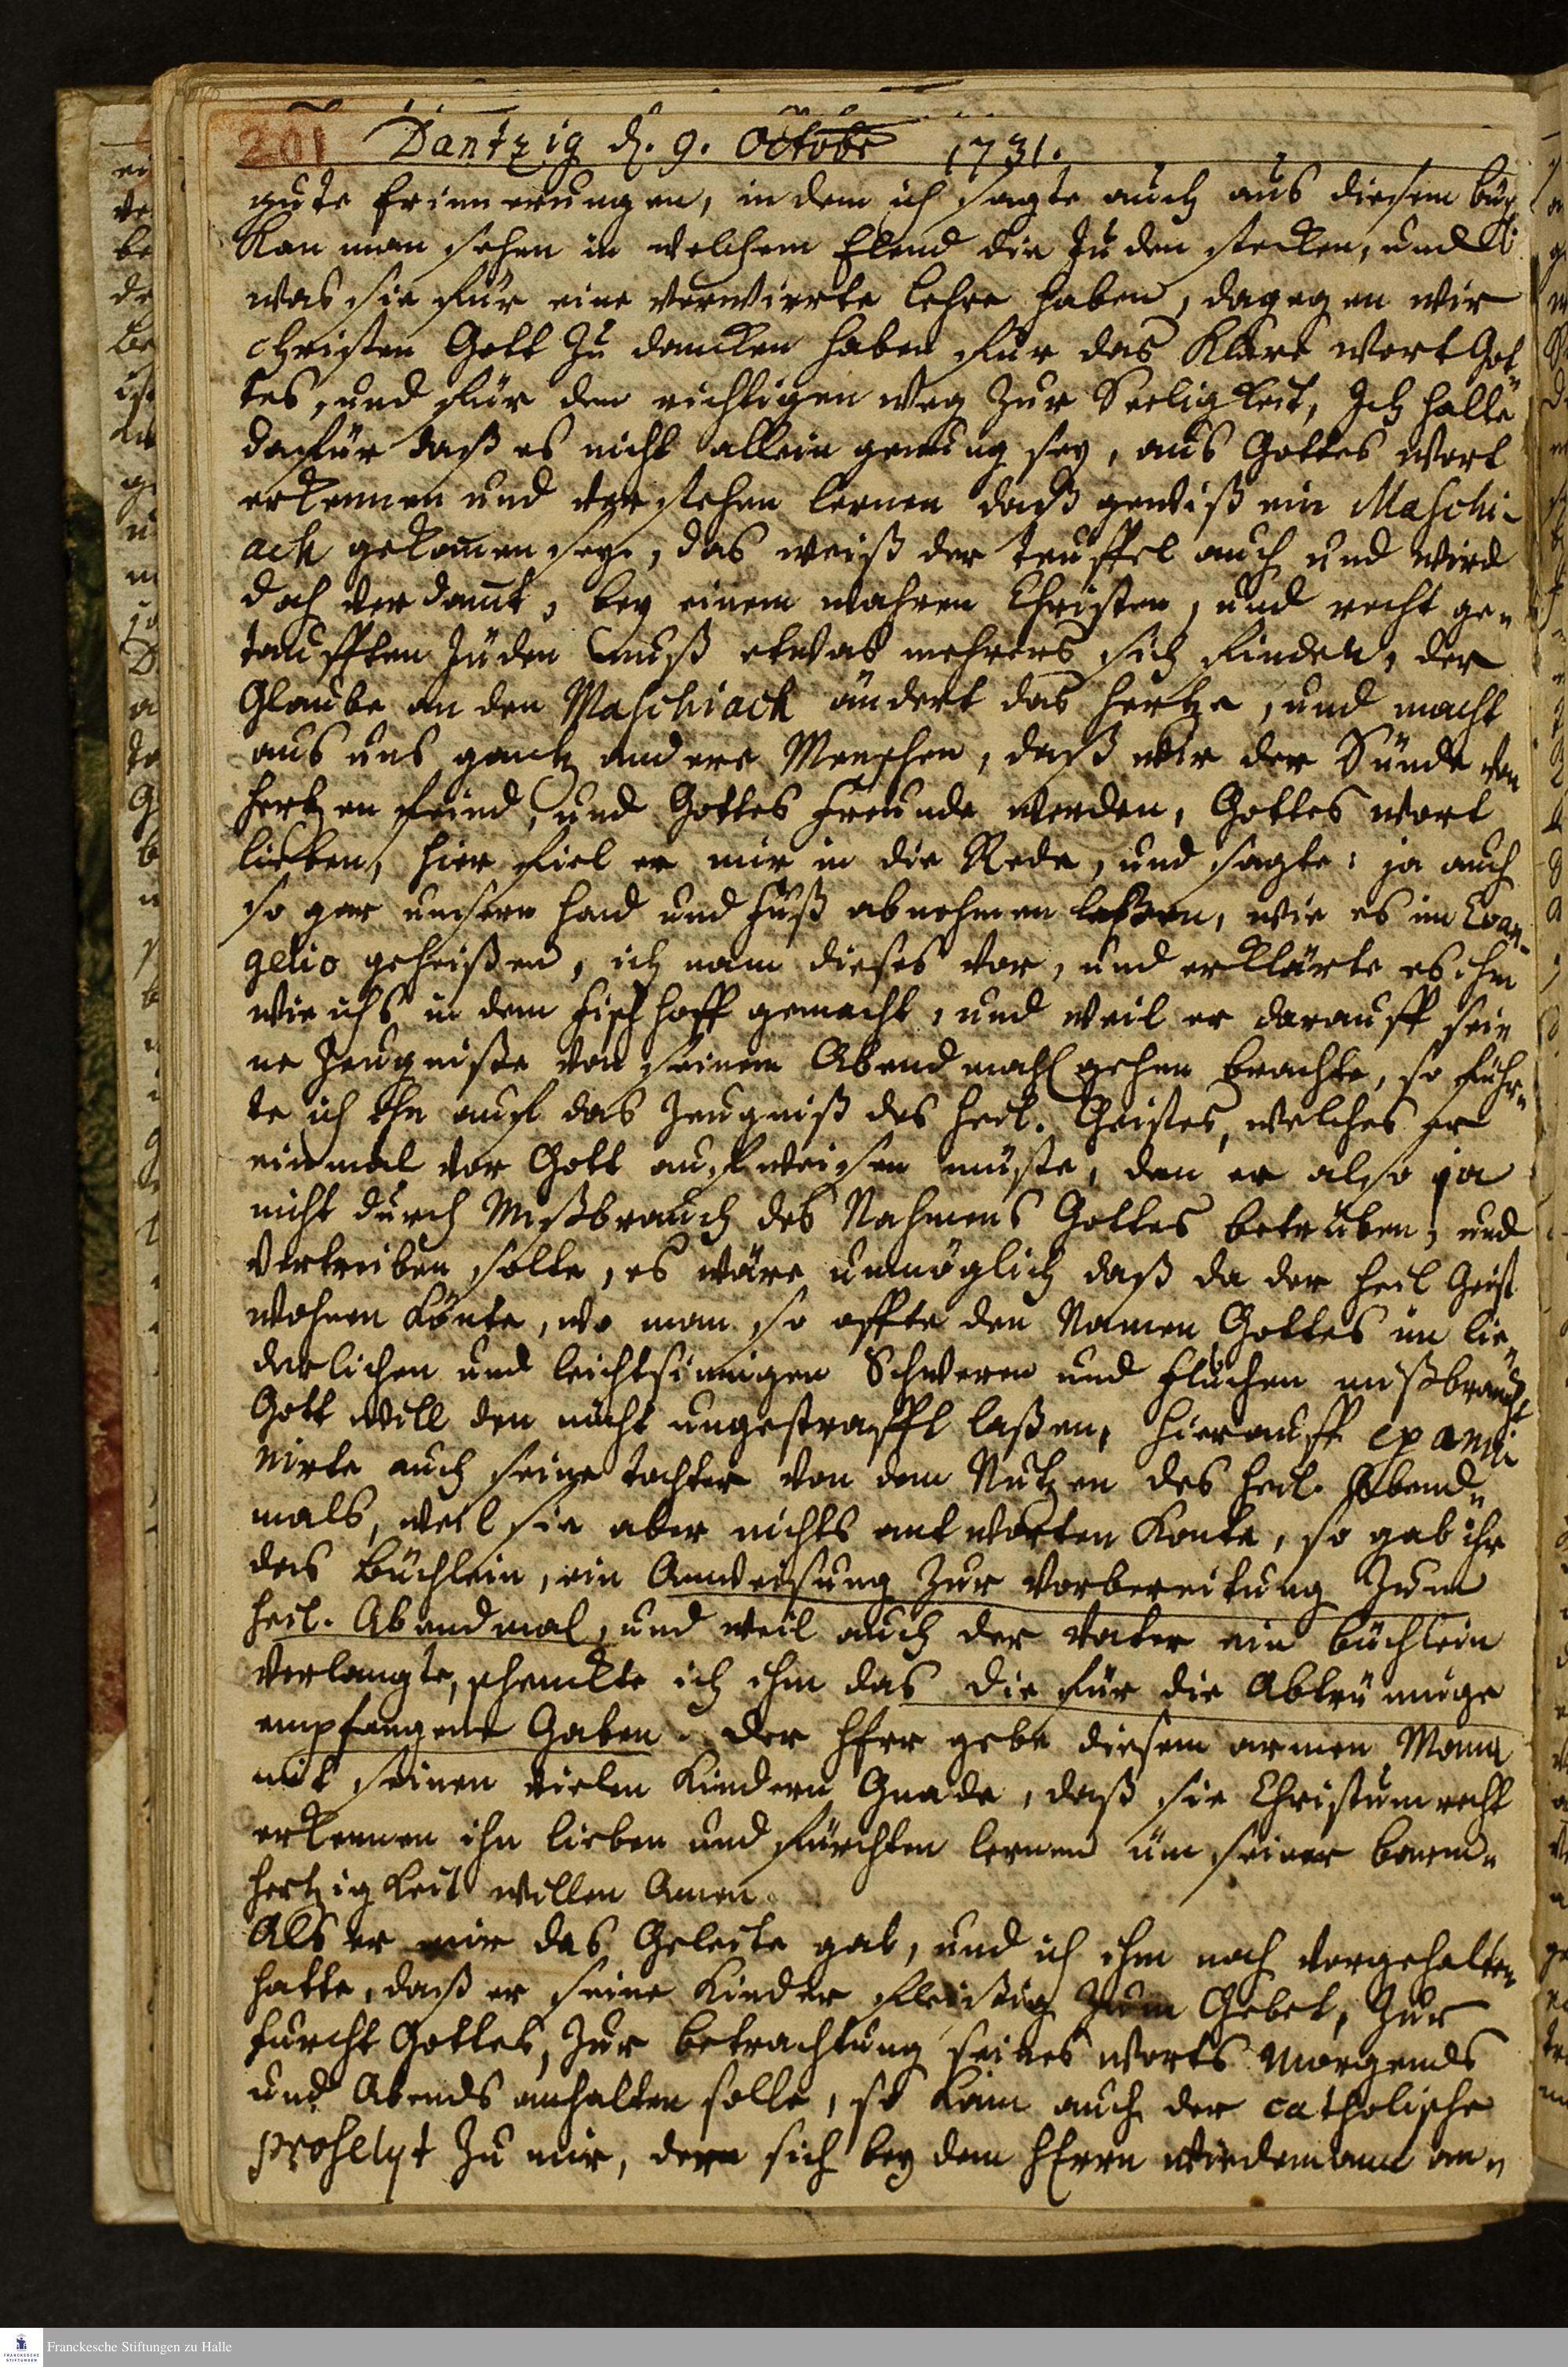 201 Dantzig d. 9. Octobr 1731.
gute Erinnerungen, in dem ich sagte auch aus diesem buch
kan man sehen in welchem Elend die Juden stecken, und
was sie für eine verwirrte Lehre haben, dagegen wir
Christen Gott zu dancken haben für das klare wort Got„
tes, und für den richtigen weg zur Seeligkeit, Ich halte
dafür daß es nicht allein genung sey, aus Gottes wort
erkennen und verstehen lernen daß gewiß ein Maschi-
ach gekom̄en sey, das weiß der teuffel auch und wird
doch verdam̄t, bey einem wahren Christen, und recht ge„
taufften Juden muß etwas mehrers sich finden, der
Glaube an den Maschiach ändert das hertze, und macht
aus uns gantz andere Menschen, daß wir der Sünde von
hertzen feind, und Gottes freunde werden, Gottes wort
lieben, hier fiel er mir in die Rede, und sagte: ja auch
so gar unsern Hand und fuß abnehmen laßen, wie es im Evan„
gelio geheißen, ich nam dieses vor, und erklärte es ihm
wie ichs in dem fischhoff gemacht, und weil er darauff sei„
ne Zeugniße von seinem Abendmahl gehen brachte, so führ„
te ich ihn auf das Zeugniß des heil. Geistes, welches er
einmal vor Gott aufweisen müste, den er also ja
nicht durch Mißbrauch des Nahmens Gottes betrüben, und
vertreiben solte, es wäre unmöglich daß da der heil Geist
wohnen könte, wo man so offte den Namen Gottes im lie„
derlichen und leichtsinnigen Schweren und fluchen mißbraucht
Gott will den nicht ungestrafft laßen, hierauff exami
nirte auch seine tochter von dem Nutzen des heil. Abend„
mals, weil sie aber nichts antworten konte, so gab ihr
das büchlein, ein Anweisung zur Vorbereitung zum
heil. Abendmal, und weil auch der Vater ein büchlein
verlangte, schenckte ich ihm das die für die Abtrünnige
empfangene Gaben. der Herr gebe diesem armen Mann
mit seinen vielen Kindern Gnade, daß sie Christum recht
erkennen ihn lieben und fürchten lernen um seiner barm„
hertzigkeit willen Amen.
Als er mir das Geleite gab, und ich ihm noch vorgehalten
hatte, daß er seine Kinder fleißig zum Gebet, zur
furcht Gottes, zur betrachtung seines worts Morgends
und Abends anhalten solle, so kam auch der catholische
proselyt zu mir, der sich bey dem HErrn Wiedemann an„
Franckesche Stiftungen zu Halle